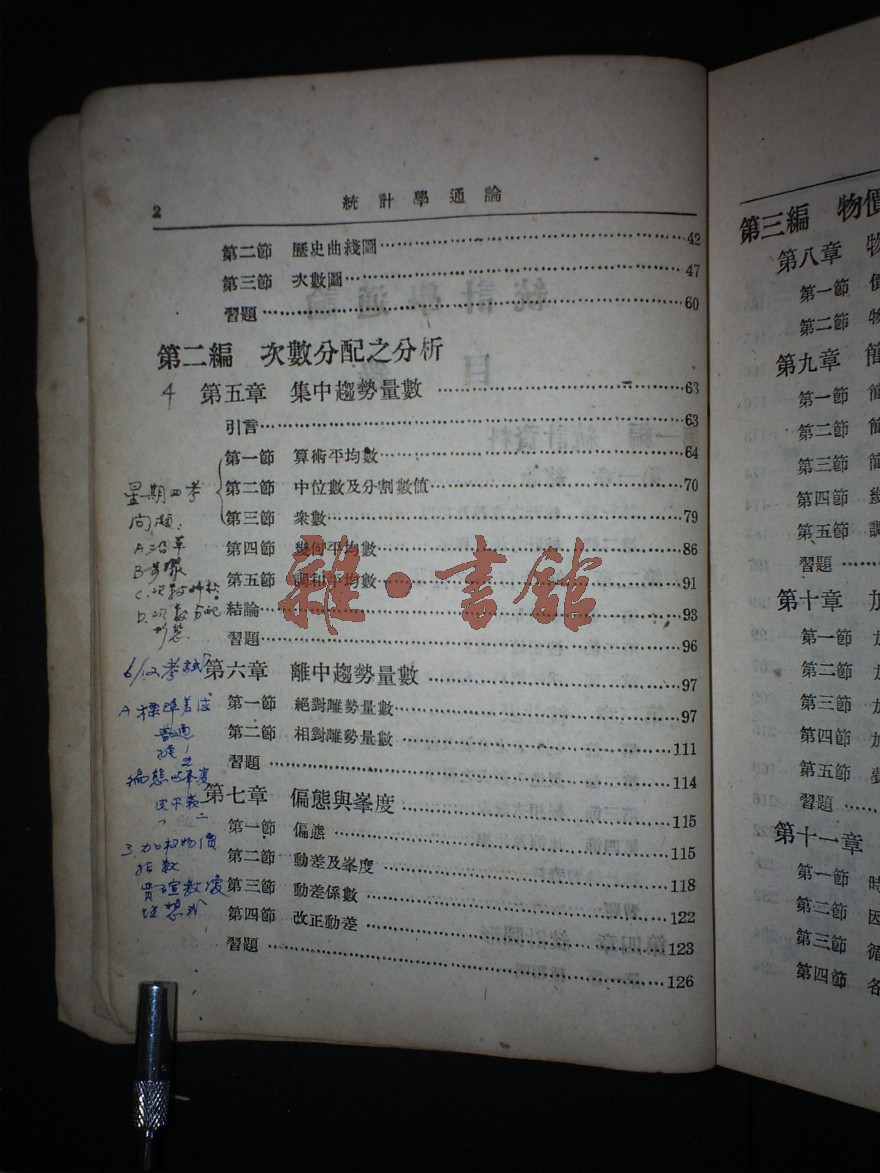 2
統計學通論
第二節 歷史曲綫圖 42
第三節 次數圖 47
習題 60
第二編 次數分配之分析
4 第五章 集中趨勢量數 63
引言 63
第一節 算術平均數 64
第二節 中位數及分割數值 70
第三節 衆數 79
第四節 幾何平均數 86
第五節 調和平均數 91
結論 93
習題 96
第六章 離中趨勢量數 97
第一節 絕對離勢量數 97
第二節 相對離勢量數 111
習題 114
第七章 偏態與峯度 115
第一節 偏態 115
第二節 動差及峯度 118
第三節 動差係數 122
第四節 改正動差 123
習題 126
星期四考
問題:
A.沿革
C.次數
D.次數分配
考試
A 標準差
普通
偏態
3.加權物價
指數
雜·書館
第三編 物價
第八章 物
第一節 價
第二節 物
第九章 簡
第一節 簡
第二節 簡
第三節 簡
第四節 幾
第五節 調
習題
第十章 加
第一節 加
第二節 加
第三節 加
第四節 加
第五節
習題
第十一章
第一節 時
第二節 因
第三節 循
第四節 各